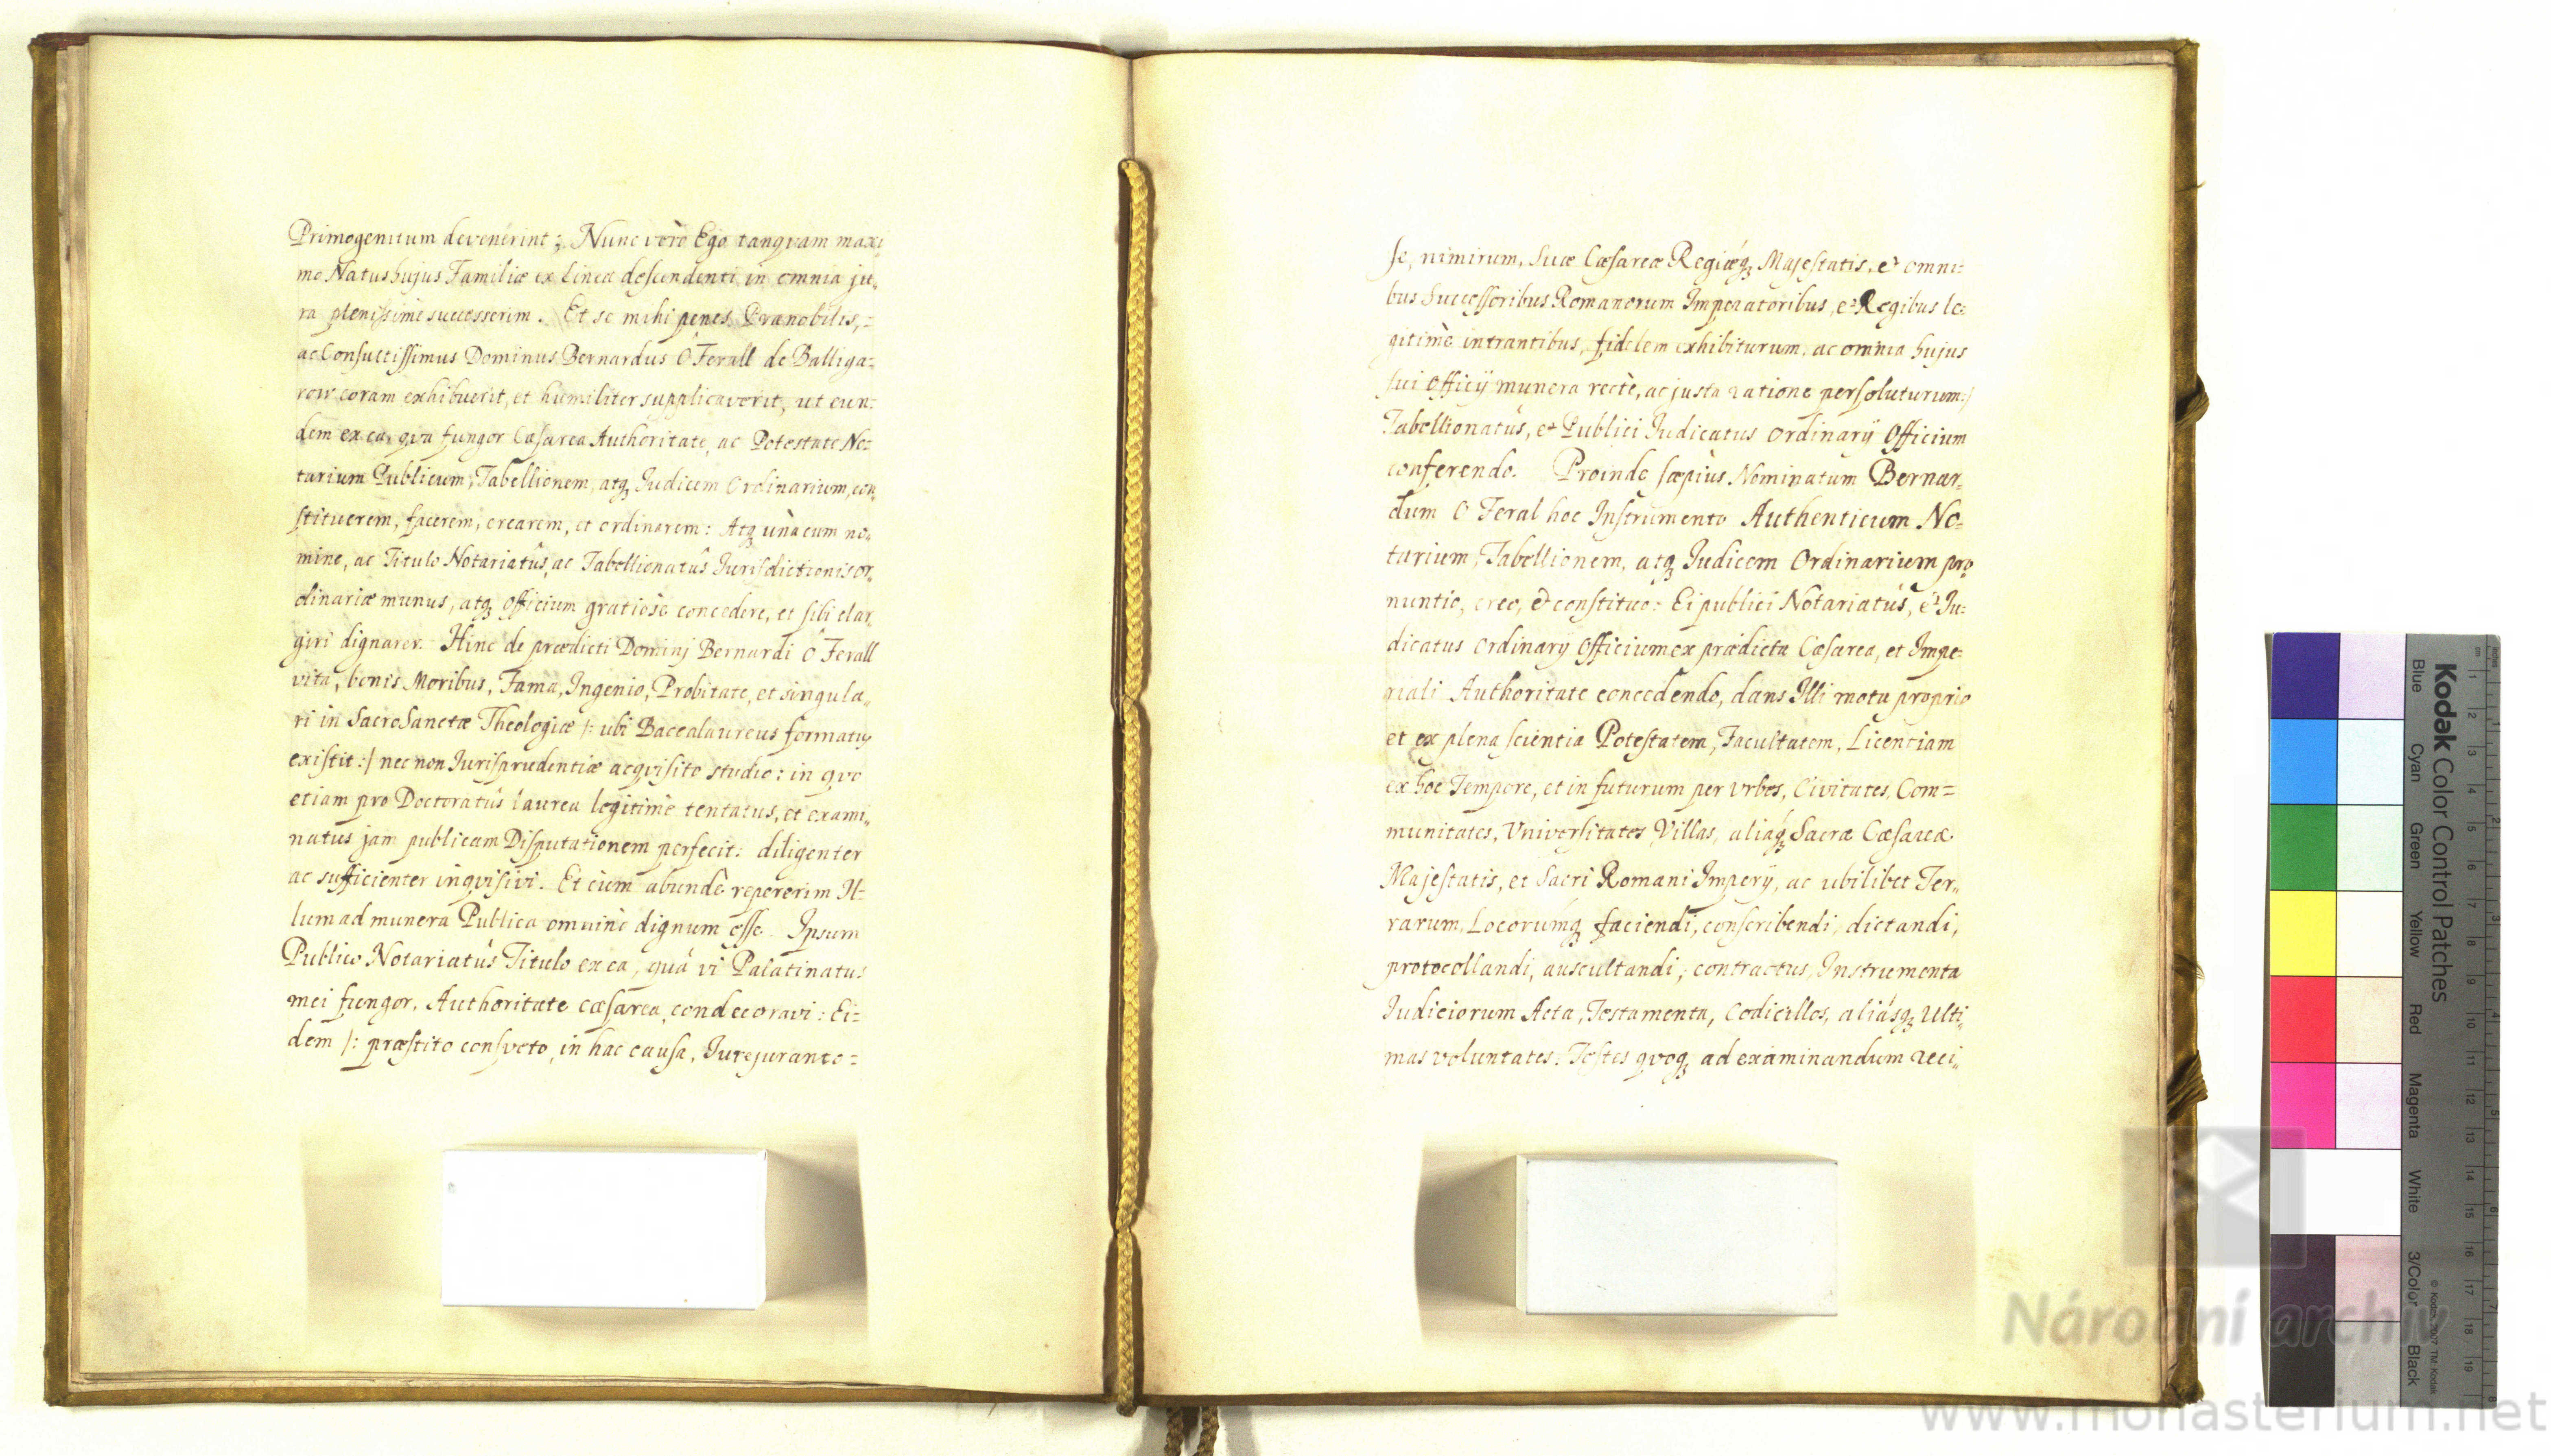 Primogenitum devenerint; Nunc verò Ego tanqvam maxi
mo Natus hujus Familiæ ex Linea descendenti in omnia ju„
ra plenissime successerim. Et se mihi penes Prænobilis,=
ac Consultissimus Dominus Bernardus O Ferall de Balliga=
row coram exhibuerit, et humiliter supplicaverit, ut eun=
dem ex ea, qva fungor Cæsarea Authoritate, ac Potestate No=
tarium Publicum, Tabellionem, atq; Judicem Ordinarium, con„
stituerem, facerem, crearem, et ordinarem: Atq; unà cum no„
mine, ac Titulo Notariatûs, ac Tabellionatûs Jurisdictionis or„
dinariæ munus, atq; officium gratiose concedere, et sibi elar
giri dignarer. Hinc de prædicti Dominj Bernardi O Ferall
vita, bonis Moribus, Fama, Ingenio, Probitate, et singula„
ri in SacroSanctæ Theologiæ /: ubi Baccalaureus formatus
existit:/ nec non Jurisprudentiæ acqvisito studio: in qvo
etiam pro Doctoratûs laurea legitimè tentatus, et exami„
natus jam publicam Disputationem perfecit: diligenter
ac sufficienter inqvisivi. Et cum abundè repererim Il=
lum ad munera Publica omninò dignum esse. Ipsum
Publico Notariatûs Titulo ex ea, quâ vi Palatinatus
mei fungor, Authoritate cæsarea, condecoravi: Ei=
dem /: præstito consveto, in hac causa, Jurejurando=
se, nimirum, Suæ Cæsareæ Regiæq; Majestatis, et omni=
bus Successoribus Romanorum Imperatoribus, et Regibus le=
gitimè intrantibus, fidelem exhibiturum, ac omnia hujus
sui Officij munera rectè, ac justa ratione persoluturum:/
Tabellionatûs, et Publici Judicatus Ordinarij Officium
conferendo. Proinde sæpiùs Nominatum Bernar„
dum O Feral hoc Instrumento Authenticum No=
tarium, Tabellionem, atq; Judicem Ordinarium pro
nuntio, creo, et constituo: Ei publici Notariatûs, et Ju=
dicatus Ordinarij Officium ex prædicta Cæsarea, et Impe=
riali Authoritate concedendo, dans Illi motu proprio
et ex plena scientia Potestatem, Facultatem, Licentiam
ex hoc Tempore, et in futurum per Urbes, Civitates, Com=
munitates, Universitates Villas, aliaq; Sacræ Cæsareæ
Majestatis, et Sacri Romani Imperij, ac ubilibet Ter„
rarum, Locorumq; faciendi, conscribendi, dictandi,
protocollandi, auscultandi, contractus, Instrumenta
Judiciorum Acta, Testamenta, Codicillos, aliasq; Ulti„
mas voluntates: Testes qvoq; ad examinandum reci„
Kodak Color Control Patches
Blue Cyan Green Yellow Red Magenta White 3/Color Black
© Kodak, 2007 TM: Kodak
inches
cm 1 2 3 4 5 6 7 8 9 10 11 12 13 14 15 16 17 18 19
Národní archiv
www.monasterium.net